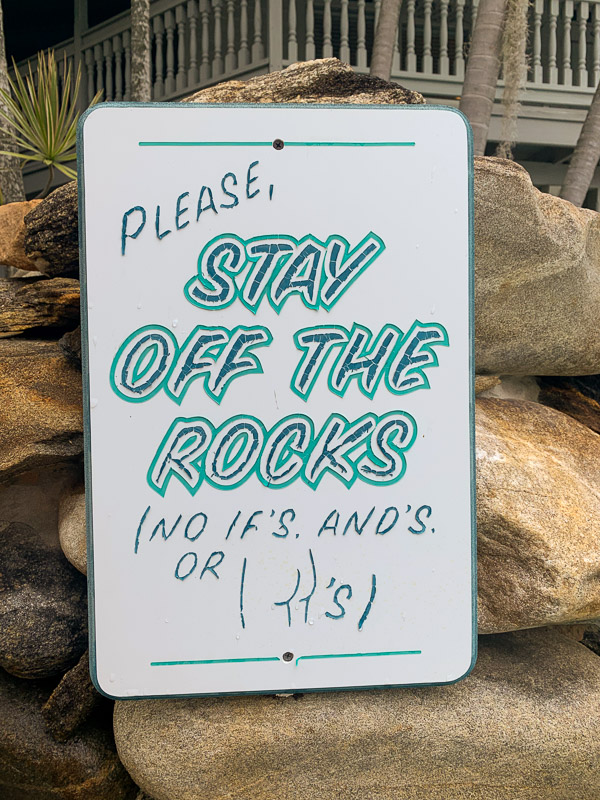 PLEASE,
STAY
OFF THE
ROCKS
(NO IF'S, AND'S.
OR 'S)